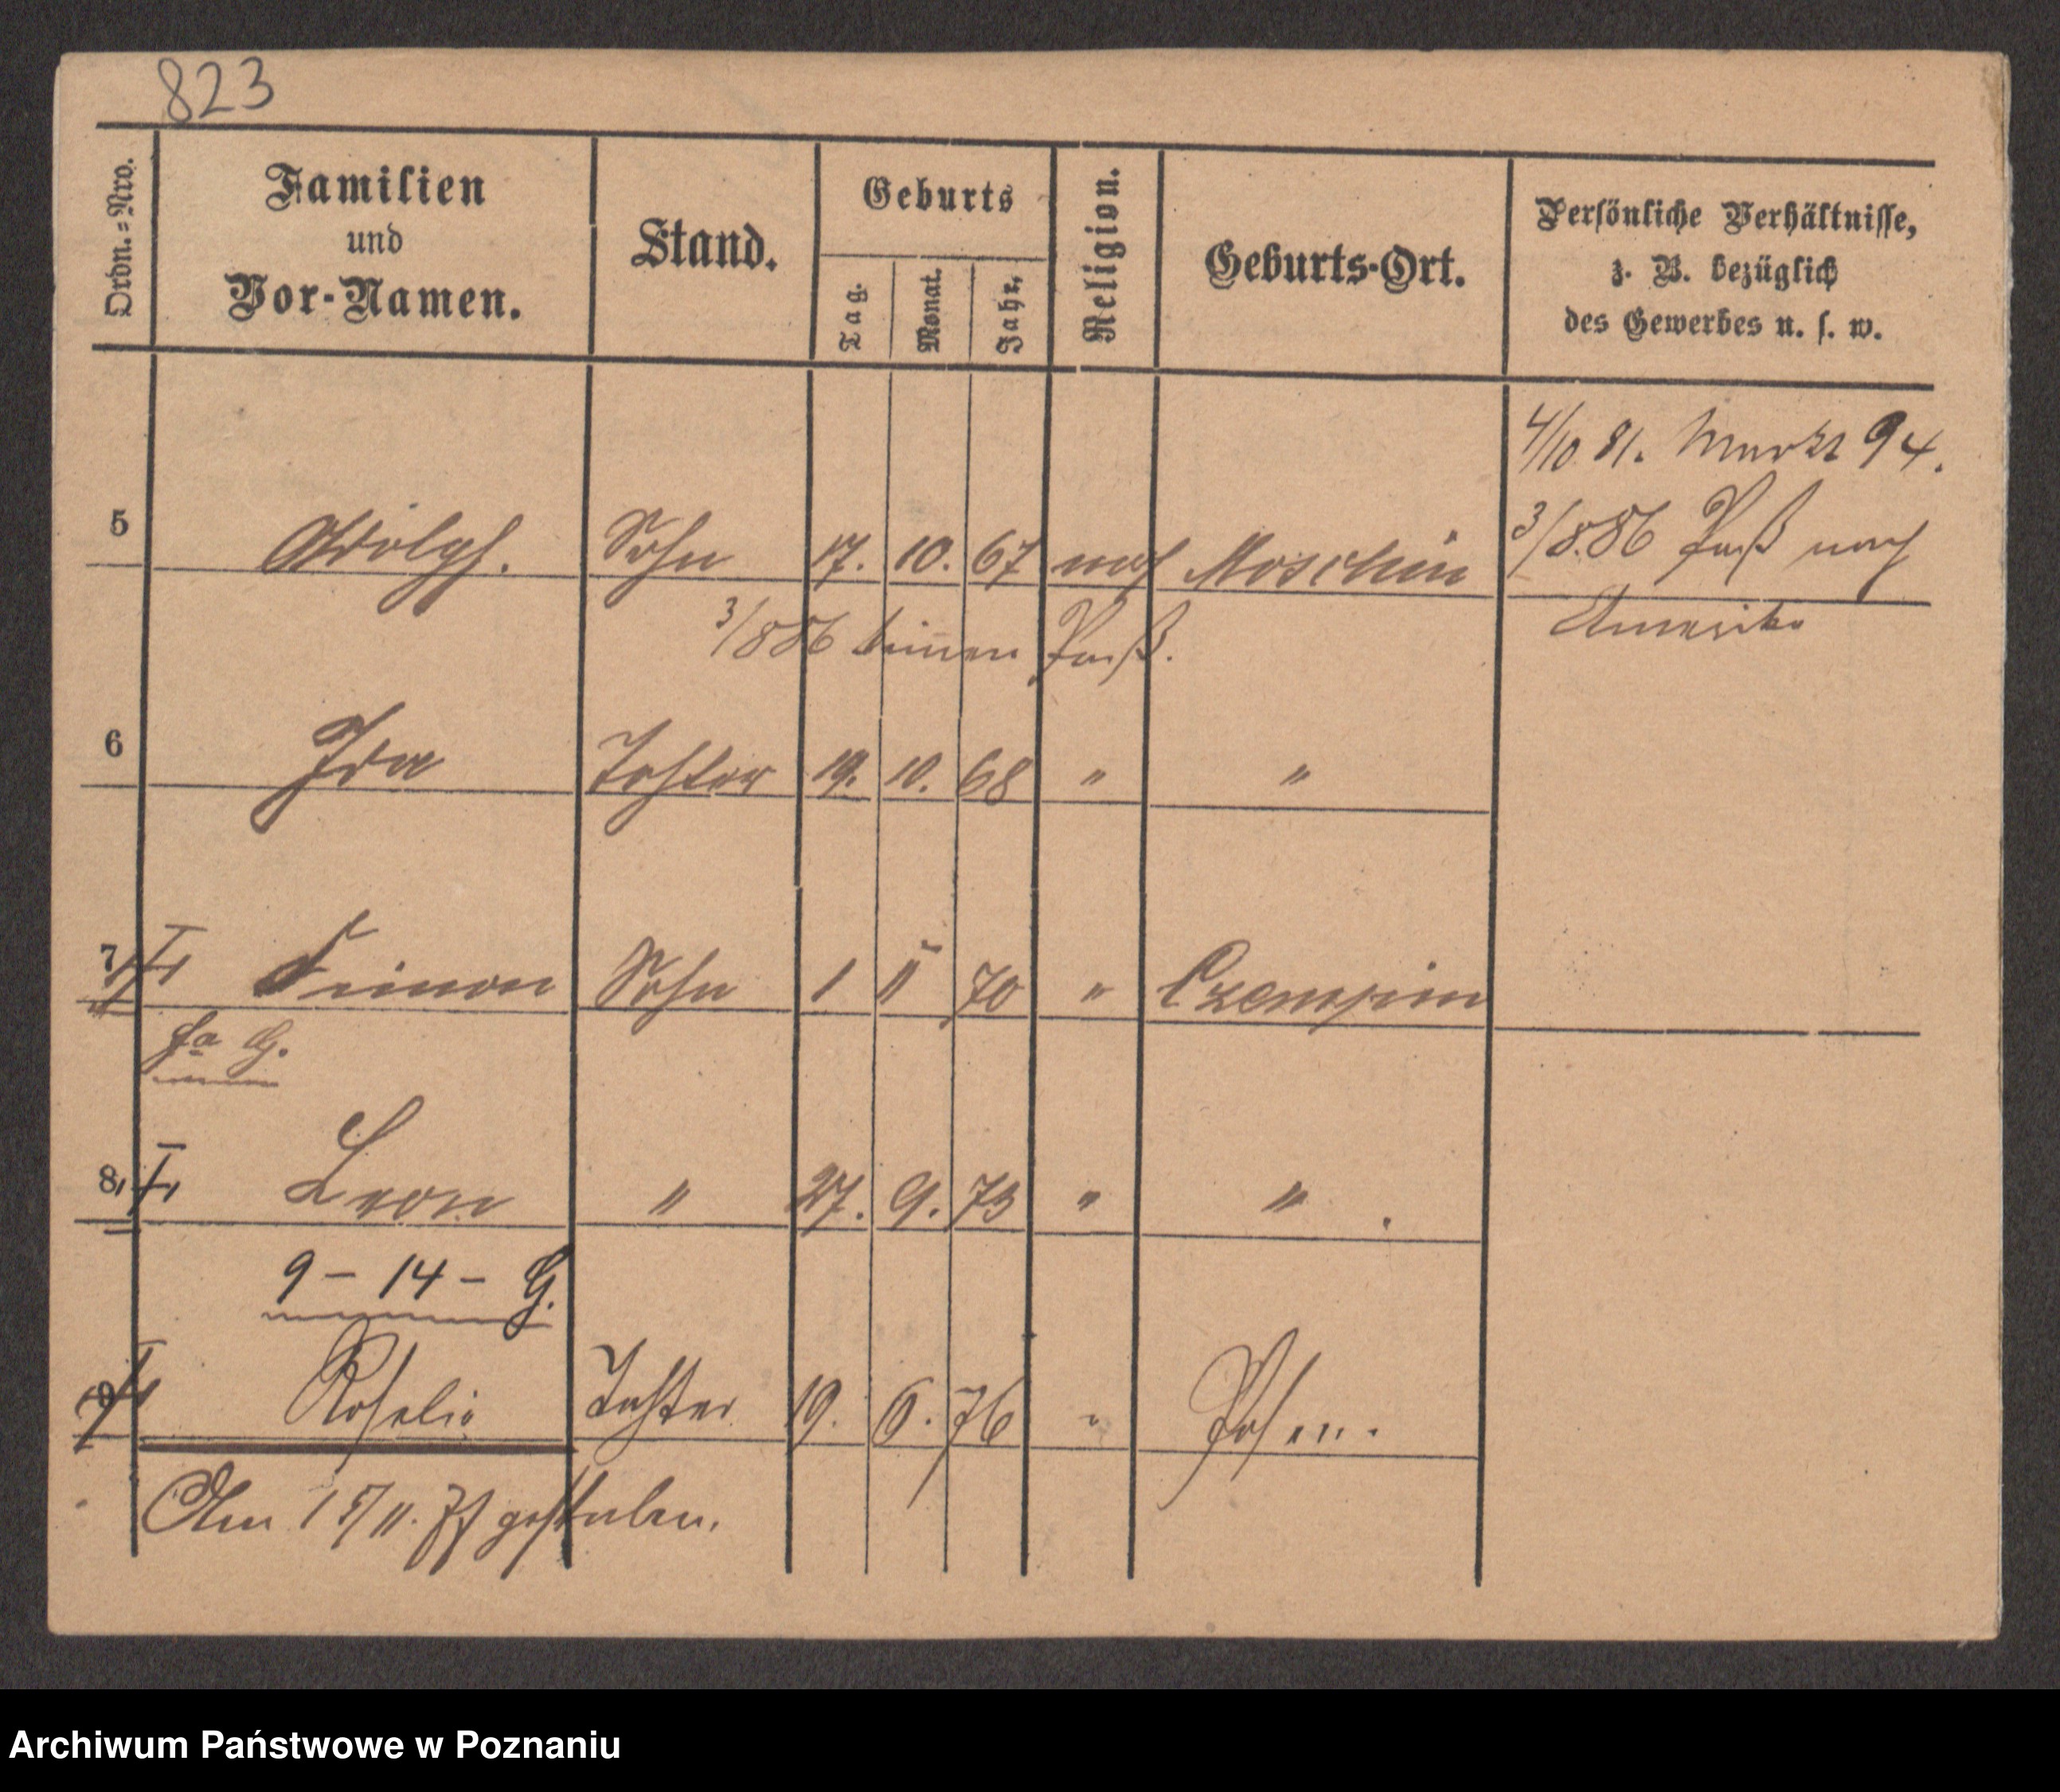 823
Ordn.=Nro.
Familien
und
Vor-Namen.
Stand.
Geburts
Tag.
Monat.
Jahr.
Religion.
Geburts-Ort.
Persönliche Verhältnisse,
z. B. bezüglich
des Gewerbes u. s. w.
4/10 81. Markt 94.
5 Adolph. Sohn 17. 10. 67 mos Moschin 3/8.86 Paß nach
Amerika
3/8 86 keinen Paß.
6 Ida Tochter 19. 10. 68 " "
7 Simon Sohn 1 11 70 " Czempin
8 Leon " 27. 9. 73 " "
9 - 14 - G.
9 Rosalie Tochter 19. 6. 76 " Posen.
Am 15/11. 77 gestorben.
Archiwum Państwowe w Poznaniu